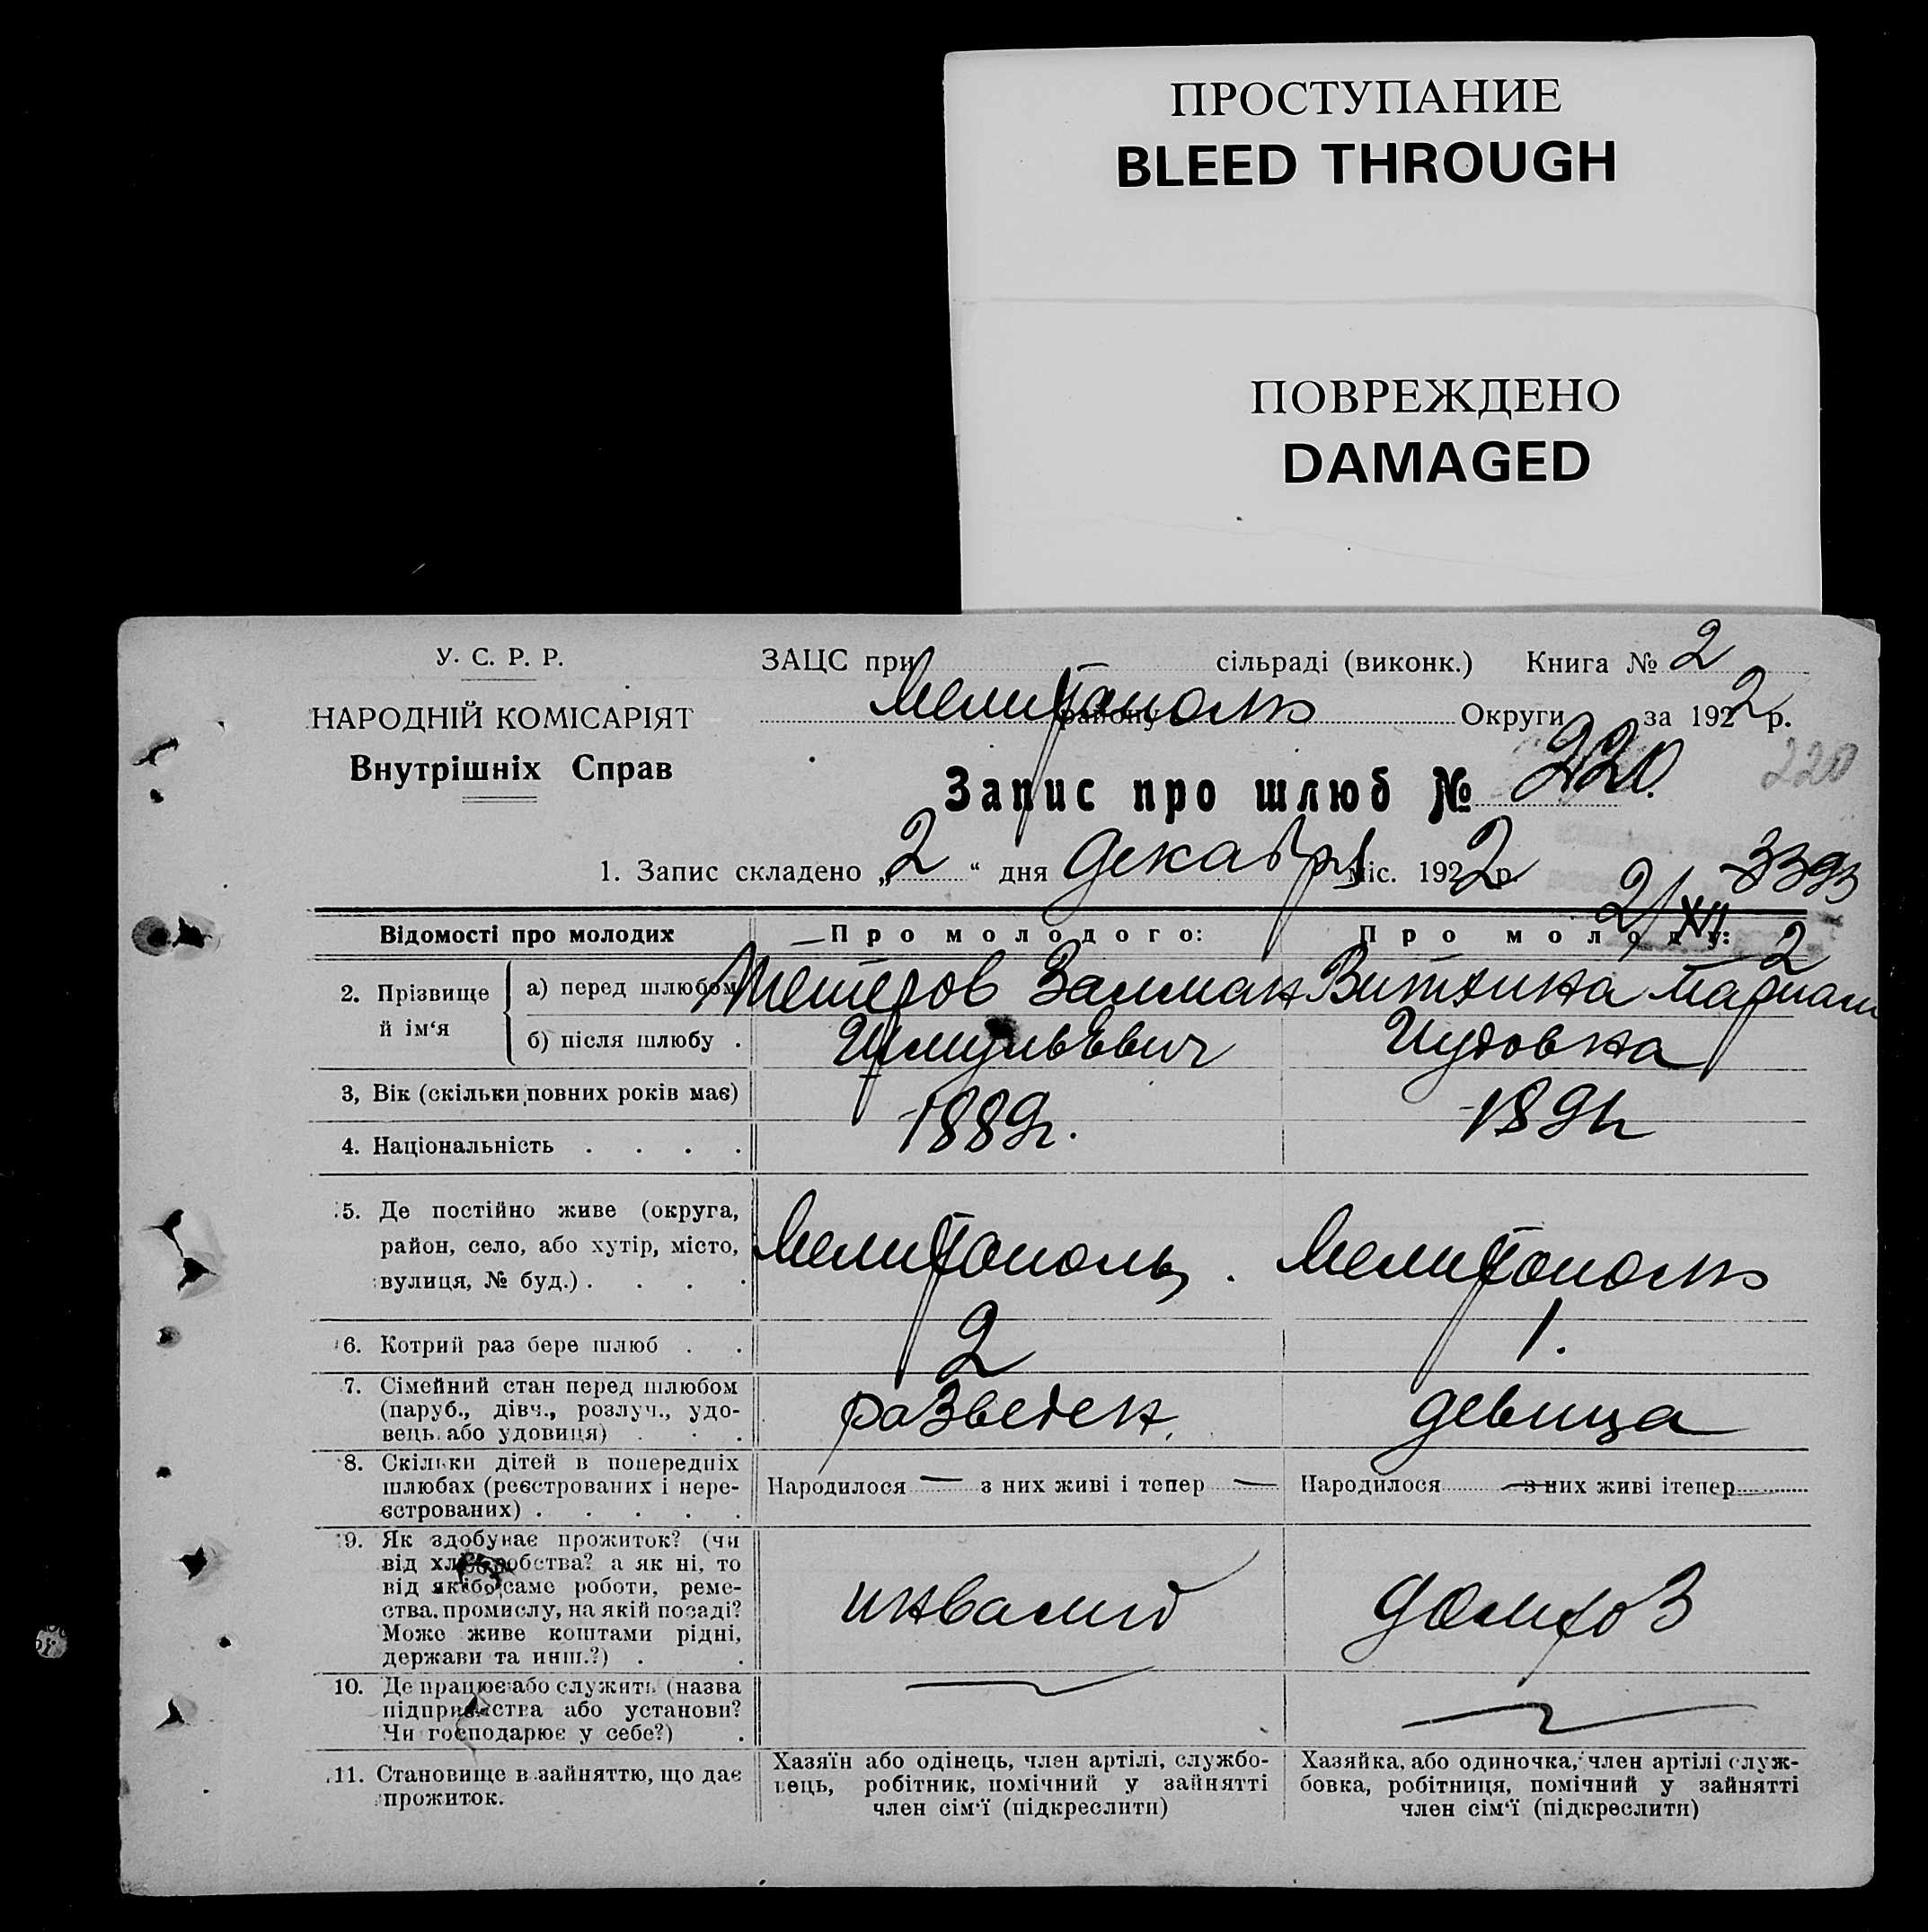 ПРОСТУПАНИЕ
BLEED THROUGH
ПОВРЕЖДЕНО
DAMAGED
У. С. Р. Р.
НАРОДНІЙ КОМІСАРІЯТ
Внутрішніх Справ
ЗАЦС при сільраді (виконк.) Книга № 2
Мелитополь району Округи за 1922 р.
Запис про шлюб № 220.
220
1. Запис складено „2“ дня декабря міс. 1922 р.
3393
2/XII 2
Відомості про молодих Про молодого: Про молоду:
2. Прізвище й ім‘я
а) перед шлюбом Залман Мариам
б) після шлюбу . Шмульевич Иудовна
3, Вік (скільки повних років має)
4. Національність . . . . 1889г. 189
5. Де постійно живе (округа,
район, село, або хутір, місто,
вулиця, № буд.) . . . . Мелитополь. Мелитополь
6. Котрий раз бере шлюб . . 2 1.
7. Сімейний стан перед шлюбом
(паруб., дівч., розлуч., удо-
вець або удовиця) . . . разведен. девица
8. Скільки дітей в попередніх
шлюбах (реєстрованих і нере-
єстрованих) . . . . .
Народилося — з них живі і тепер — Народилося — з них живі і тепер
9. Як здобуває прожиток? (чи
від хліборобства? а як ні, то
від якої саме роботи, реме-
ства, промислу, на якій посаді?
Може живе коштами рідні,
держави та инш.?) . . инвалид домхоз
10. Де працює або служить (назва
підприємства або установи?
Чи господарює у себе?) . — —
11. Становище в зайняттю, що дає
прожиток.
Хазяїн або одінець, член артілі, службо-
вець, робітник, помічний у зайнятті
член сім‘ї (підкреслити)
Хазяйка, або одиночка, член артілі служ-
бовка, робітниця, помічний у зайнятті
член сім‘ї (підкреслити)